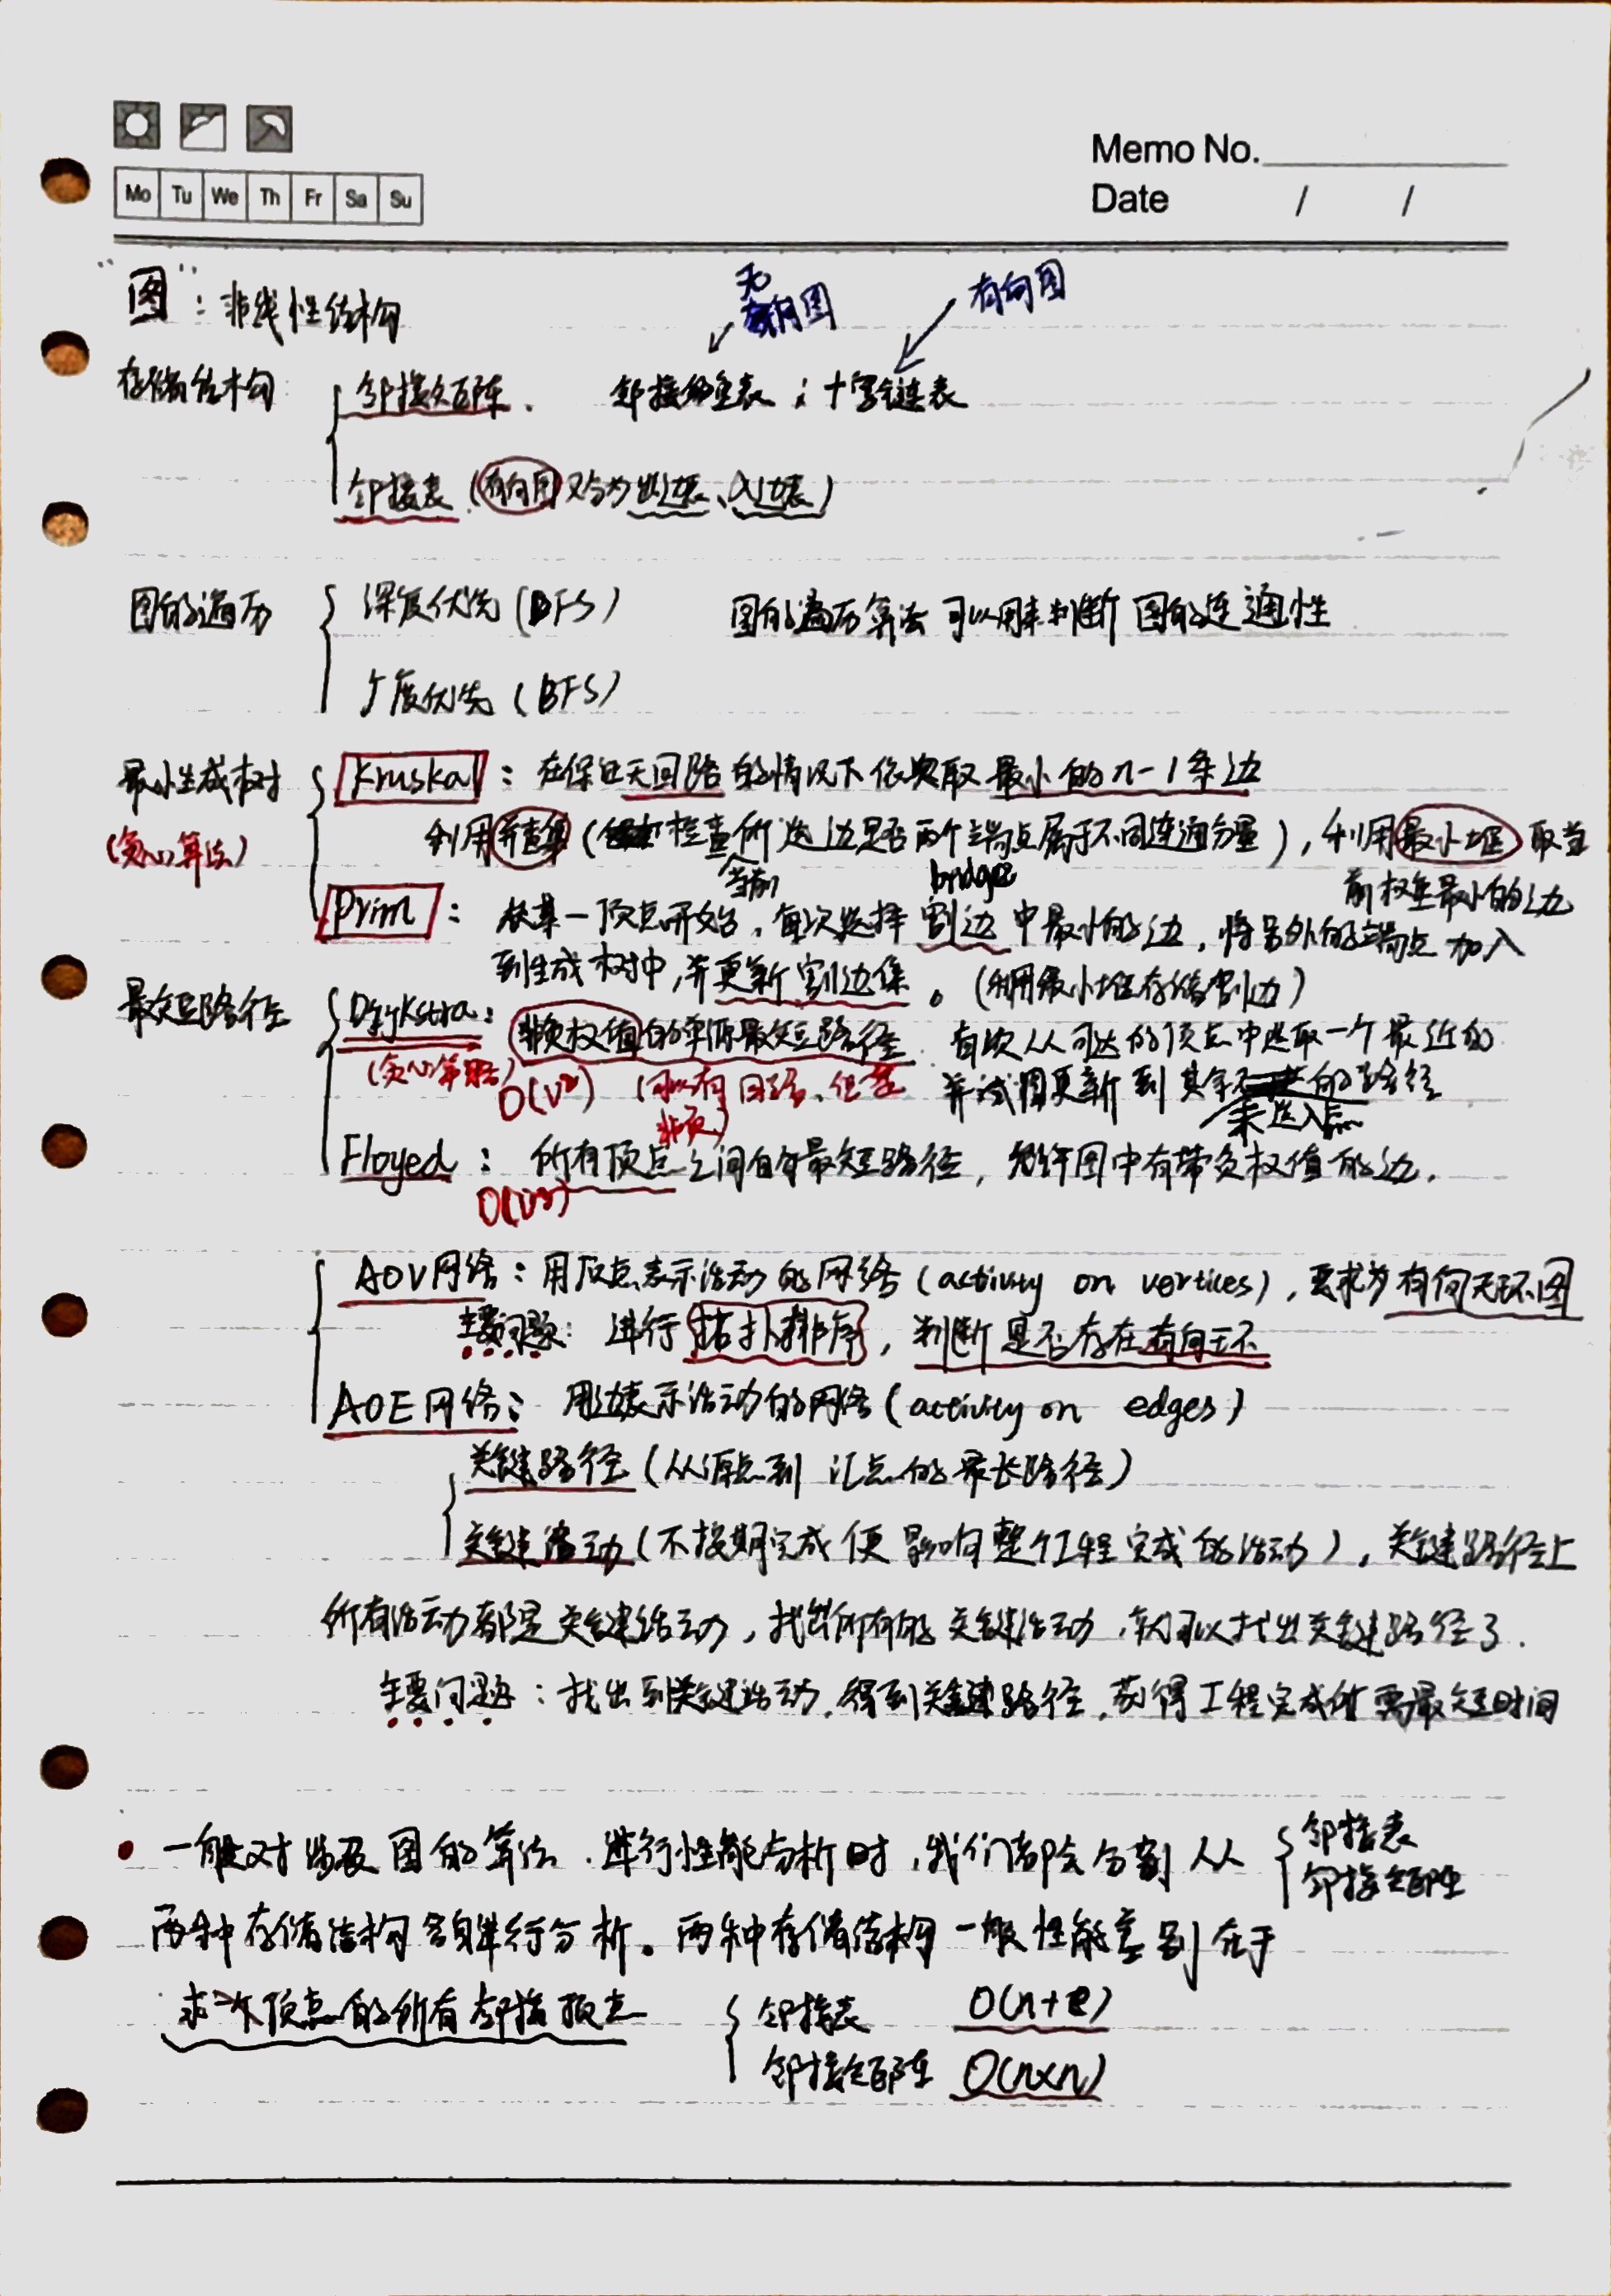 Memo No.
Mo Tu We Th Fr Sa Su
Date / /
"图": 非线性结构
无向图
有向图
存储结构
邻接矩阵. 邻接多重表; 十字链表
邻接表 (有向图又分为出边表、入边表)
图的遍历
深度优先 (DFS) 图的遍历算法可以用来判断图的连通性
广度优先 (BFS)
最小生成树
(贪心算法)
Kruskal: 在保证无回路的情况下依次取最小的n-1条边
利用并查集 (检查所选边是否两个端点属于不同连通分量), 利用最小堆取当
前权至最小的边
当前 bridge
Prim: 从某一顶点开始, 每次选择割边中最小的边, 将另外的端点加入
到生成树中, 并更新割边集。(利用最小堆存储割边)
最短路径
Dijykstra: 非负权值的单源最短路径. 每次从可达的顶点中选取一个最近的
(贪心算法) O(V²) (可以有回路, 但要非负) 并试图更新到其余未选入点的路径
Floyed: 所有顶点之间的最短路径, 允许图中有带负权值的边.
O(V³)
AOV网络: 用顶点表示活动的网络 (activity on vertices), 要求为有向无环图
主要问题: 进行拓扑排序, 判断是否存在有向环
AOE网络: 用边表示活动的网络 (activity on edges)
关键路径 (从源点到汇点的最长路径)
关键活动 (不按期完成便影响整个工程完成的活动), 关键路径上
所有活动都是关键活动, 找出所有的关键活动, 就可以找出关键路径了.
主要问题: 找出到关键活动, 得到关键路径, 获得工程完成所需最短时间
• 一般对涉及图的算法, 进行性能分析时, 我们都会分别从 邻接表
邻接矩阵
两种存储结构多身进行分析。两种存储结构一般性能差别在于
求一个顶点的所有邻接顶点 邻接表 O(n+e)
邻接矩阵 O(n×n)